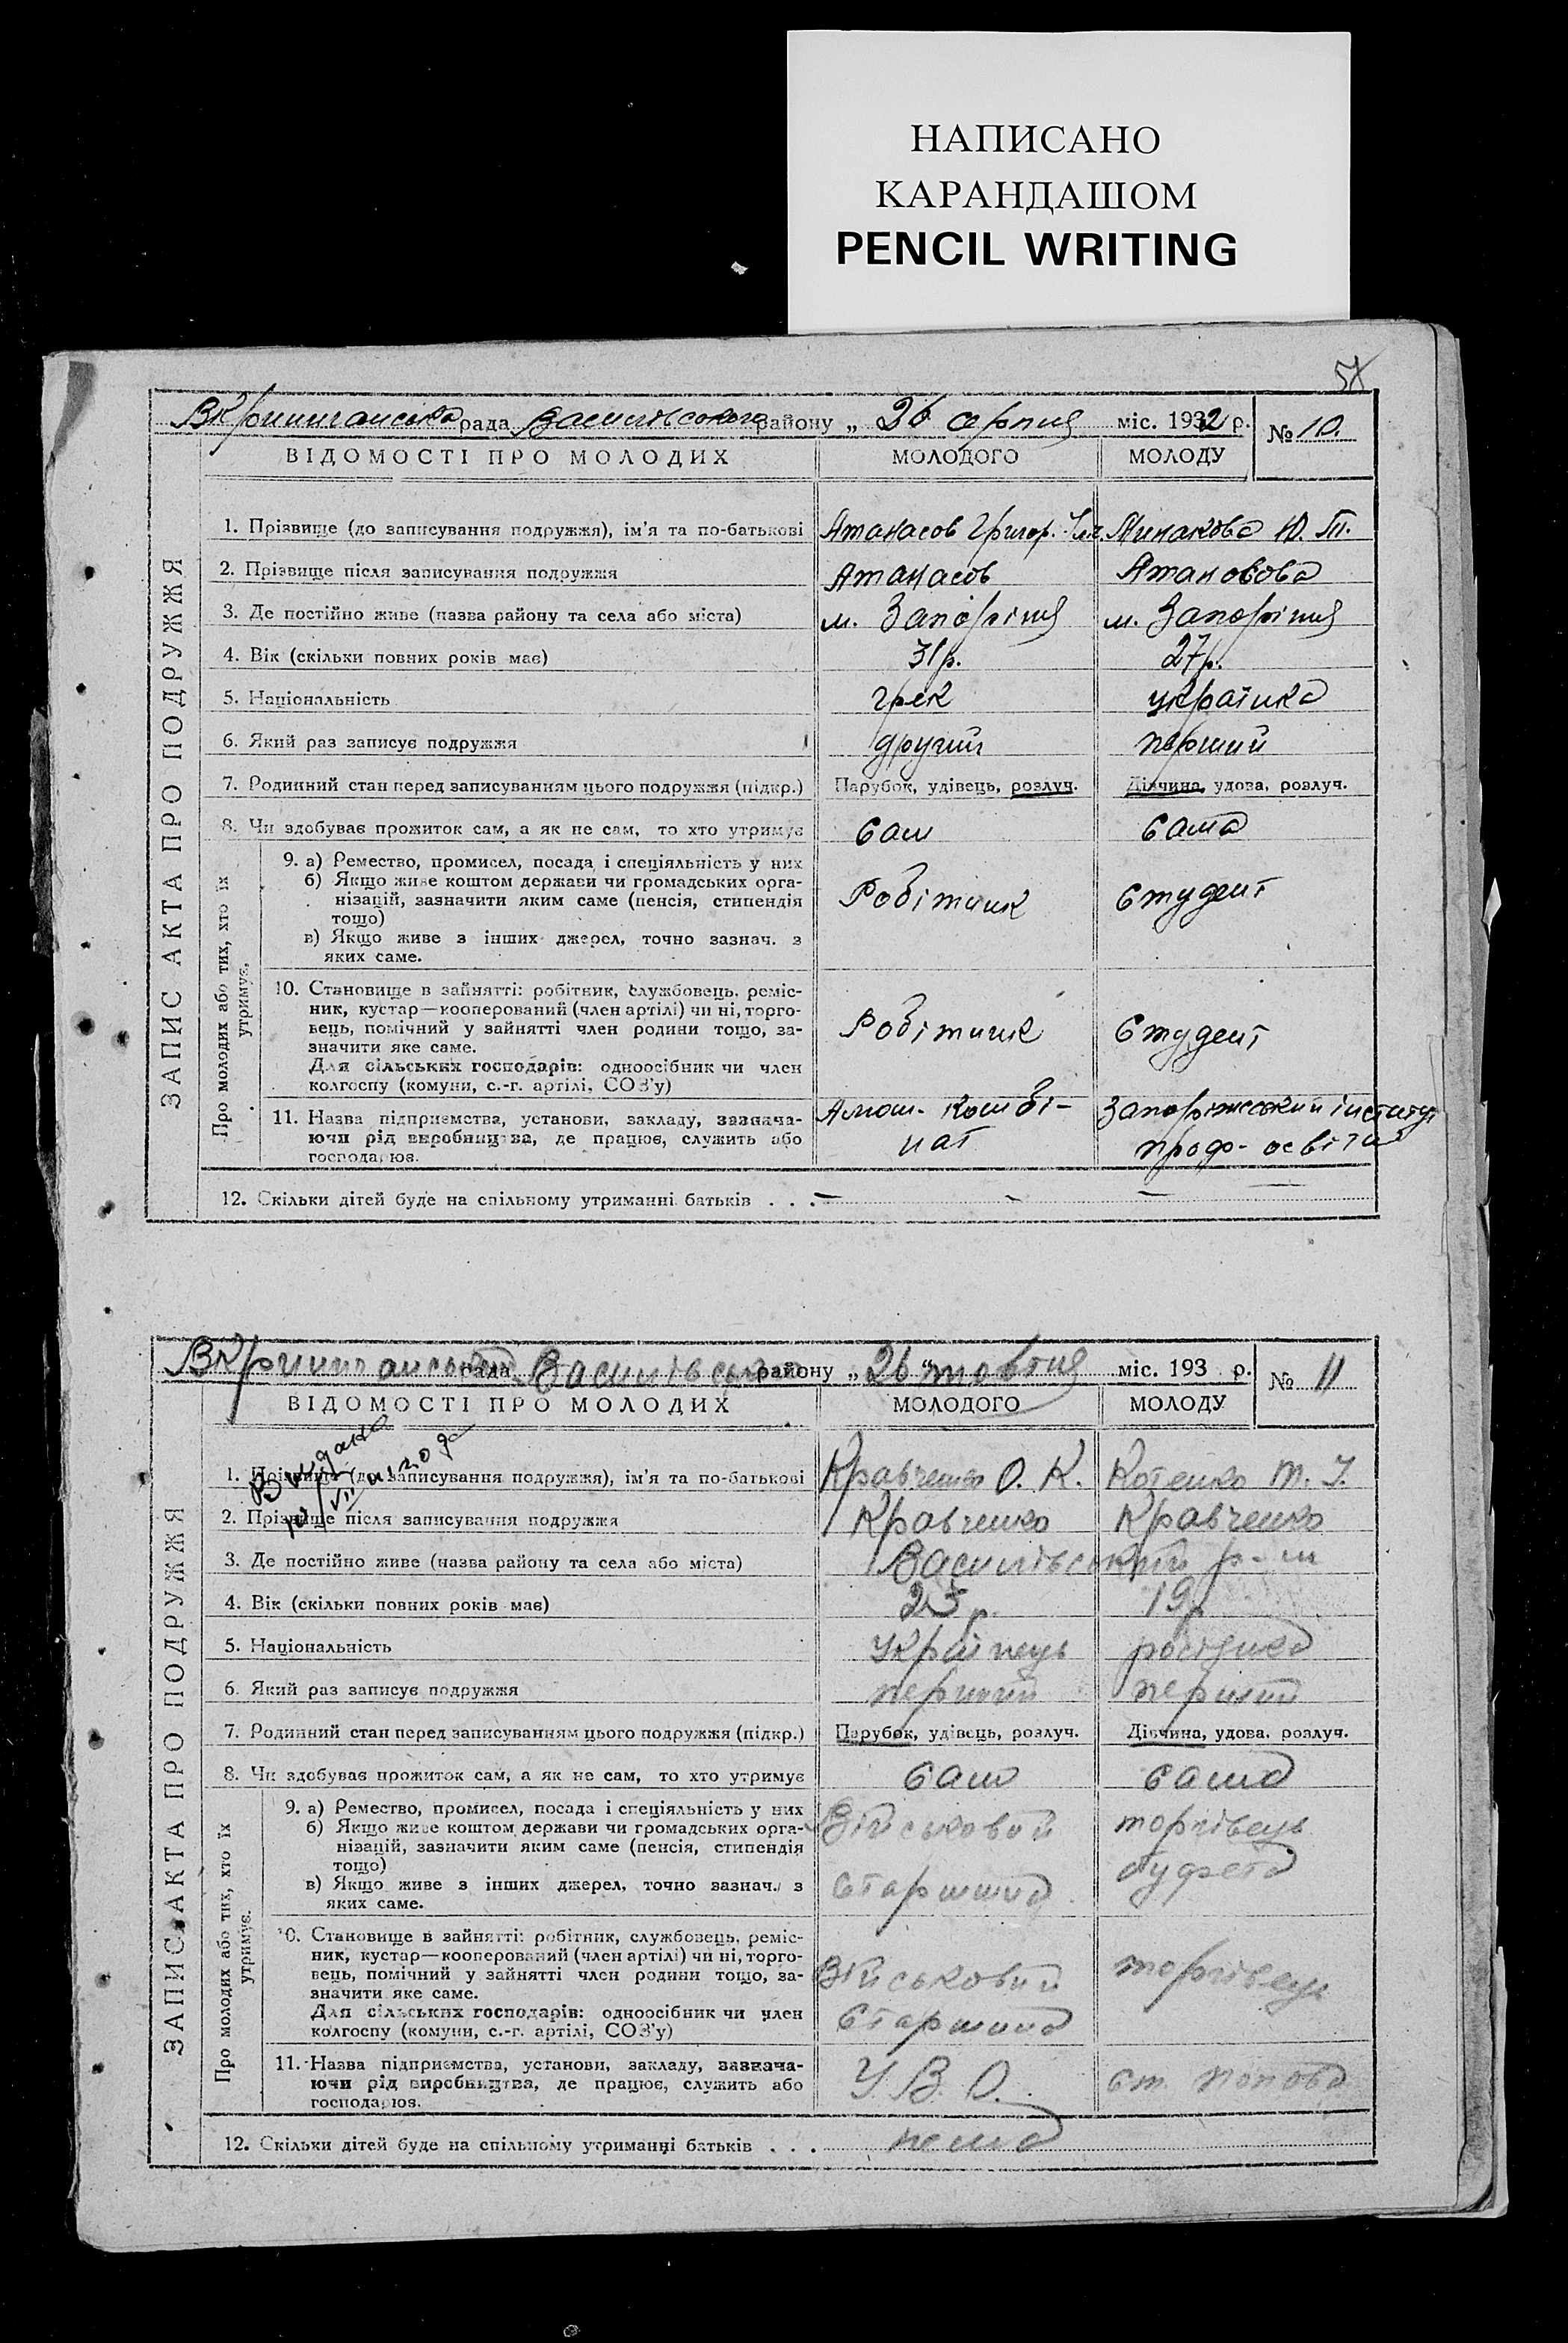 НАПИСАНО
КАРАНДАШОМ
PENCIL WRITING
ЗАПИС АКТА ПРО ПОДРУЖЖЯ
рада району „ 26 серпня міс. 1932 р. № 10.
ВІДОМОСТІ ПРО МОЛОДИХ МОЛОДОГО МОЛОДУ
1. Прізвище (до записування подружжя), ім'я та по-батькові Атанасов Григор. Минакова Ю. П.
2. Прізвище після записування подружжя Атанасов
3. Де постійно живе (назва району та села або міста) м. Запоріжжя м. Запоріжжя
4. Вік (скільки повних років має) 31р. 27р.
5. Національність грек українка
6. Який раз записує подружжя другий перший
7. Родинний стан перед записуванням цього подружжя (підкр.) Парубок, удівець, розлуч. Дівчина, удова, розлуч.
8. Чи здобуває прожиток сам, а як не сам, то хто утримує сам сама
Про молодих або тих, хто їх утримує.
9. а) Ремество, промисел, посада і спеціяльність у них
б) Якщо живе коштом держави чи громадських орга-
нізацій, зазначити яким саме (пенсія, стипендія Робітник Студент
тощо)
в) Якщо живе з інших джерел, точно зазнач. з
яких саме.
10. Становище в зайнятті: робітник, службовець, реміс-
ник, кустар—кооперований (член артілі) чи ні, торго-
вець, помічний у зайнятті член родини тощо, за- Робітник Студент
значити яке саме.
Для сільських господарів: одноосібник чи член
колгоспу (комуни, с.-г. артілі, СОЗ'у)
11. Назва підприємства, установи, закладу, зазнача- комбі- Запоріжський інститут
ючи рід виробництва, де працює, служить або нат проф-освіти
господарює.
12. Скільки дітей буде на спільному утриманні батьків . . . — — —
ЗАПИС АКТА ПРО ПОДРУЖЖЯ
рада району „ 26 “ жовтня міс. 193 р. № 11
ВІДОМОСТІ ПРО МОЛОДИХ МОЛОДОГО МОЛОДУ
Видано
1. Прізвище (до записування подружжя), ім'я та по-батькові Кравченко О. К. Котенко Т. І.
2. Прізвище після записування подружжя Кравченко Кравченко
3. Де постійно живе (назва району та села або міста) Василівський р-н
4. Вік (скільки повних років має) 25 р. 19р
5. Національність Українець росіянка
6. Який раз записує подружжя перший перший
7. Родинний стан перед записуванням цього подружжя (підкр.) Парубок, удівець, розлуч. Дівчина, удова, розлуч.
8. Чи здобуває прожиток сам, а як не сам, то хто утримує сам сама
Про молодих або тих, хто їх утримує.
9. а) Ремество, промисел, посада і спеціяльність у них
б) Якщо живе коштом держави чи громадських орга- Військовий торгівець
нізацій, зазначити яким саме (пенсія, стипендія
тощо) буфета
в) Якщо живе з інших джерел, точно зазнач. з Старшина
яких саме.
10. Становище в зайнятті: робітник, службовець, реміс-
ник, кустар—кооперований (член артілі) чи ні, торго-
вець, помічний у зайнятті член родини тощо, за- Військовий торгівець
значити яке саме.
Для сільських господарів: одноосібник чи член Старшина
колгоспу (комуни, с.-г. артілі, СОЗ'у)
11. Назва підприємства, установи, закладу, зазнача-
ючи рід виробництва, де працює, служить або У. В. О. ст. Попова
господарює.
12. Скільки дітей буде на спільному утриманні батьків . . . нема